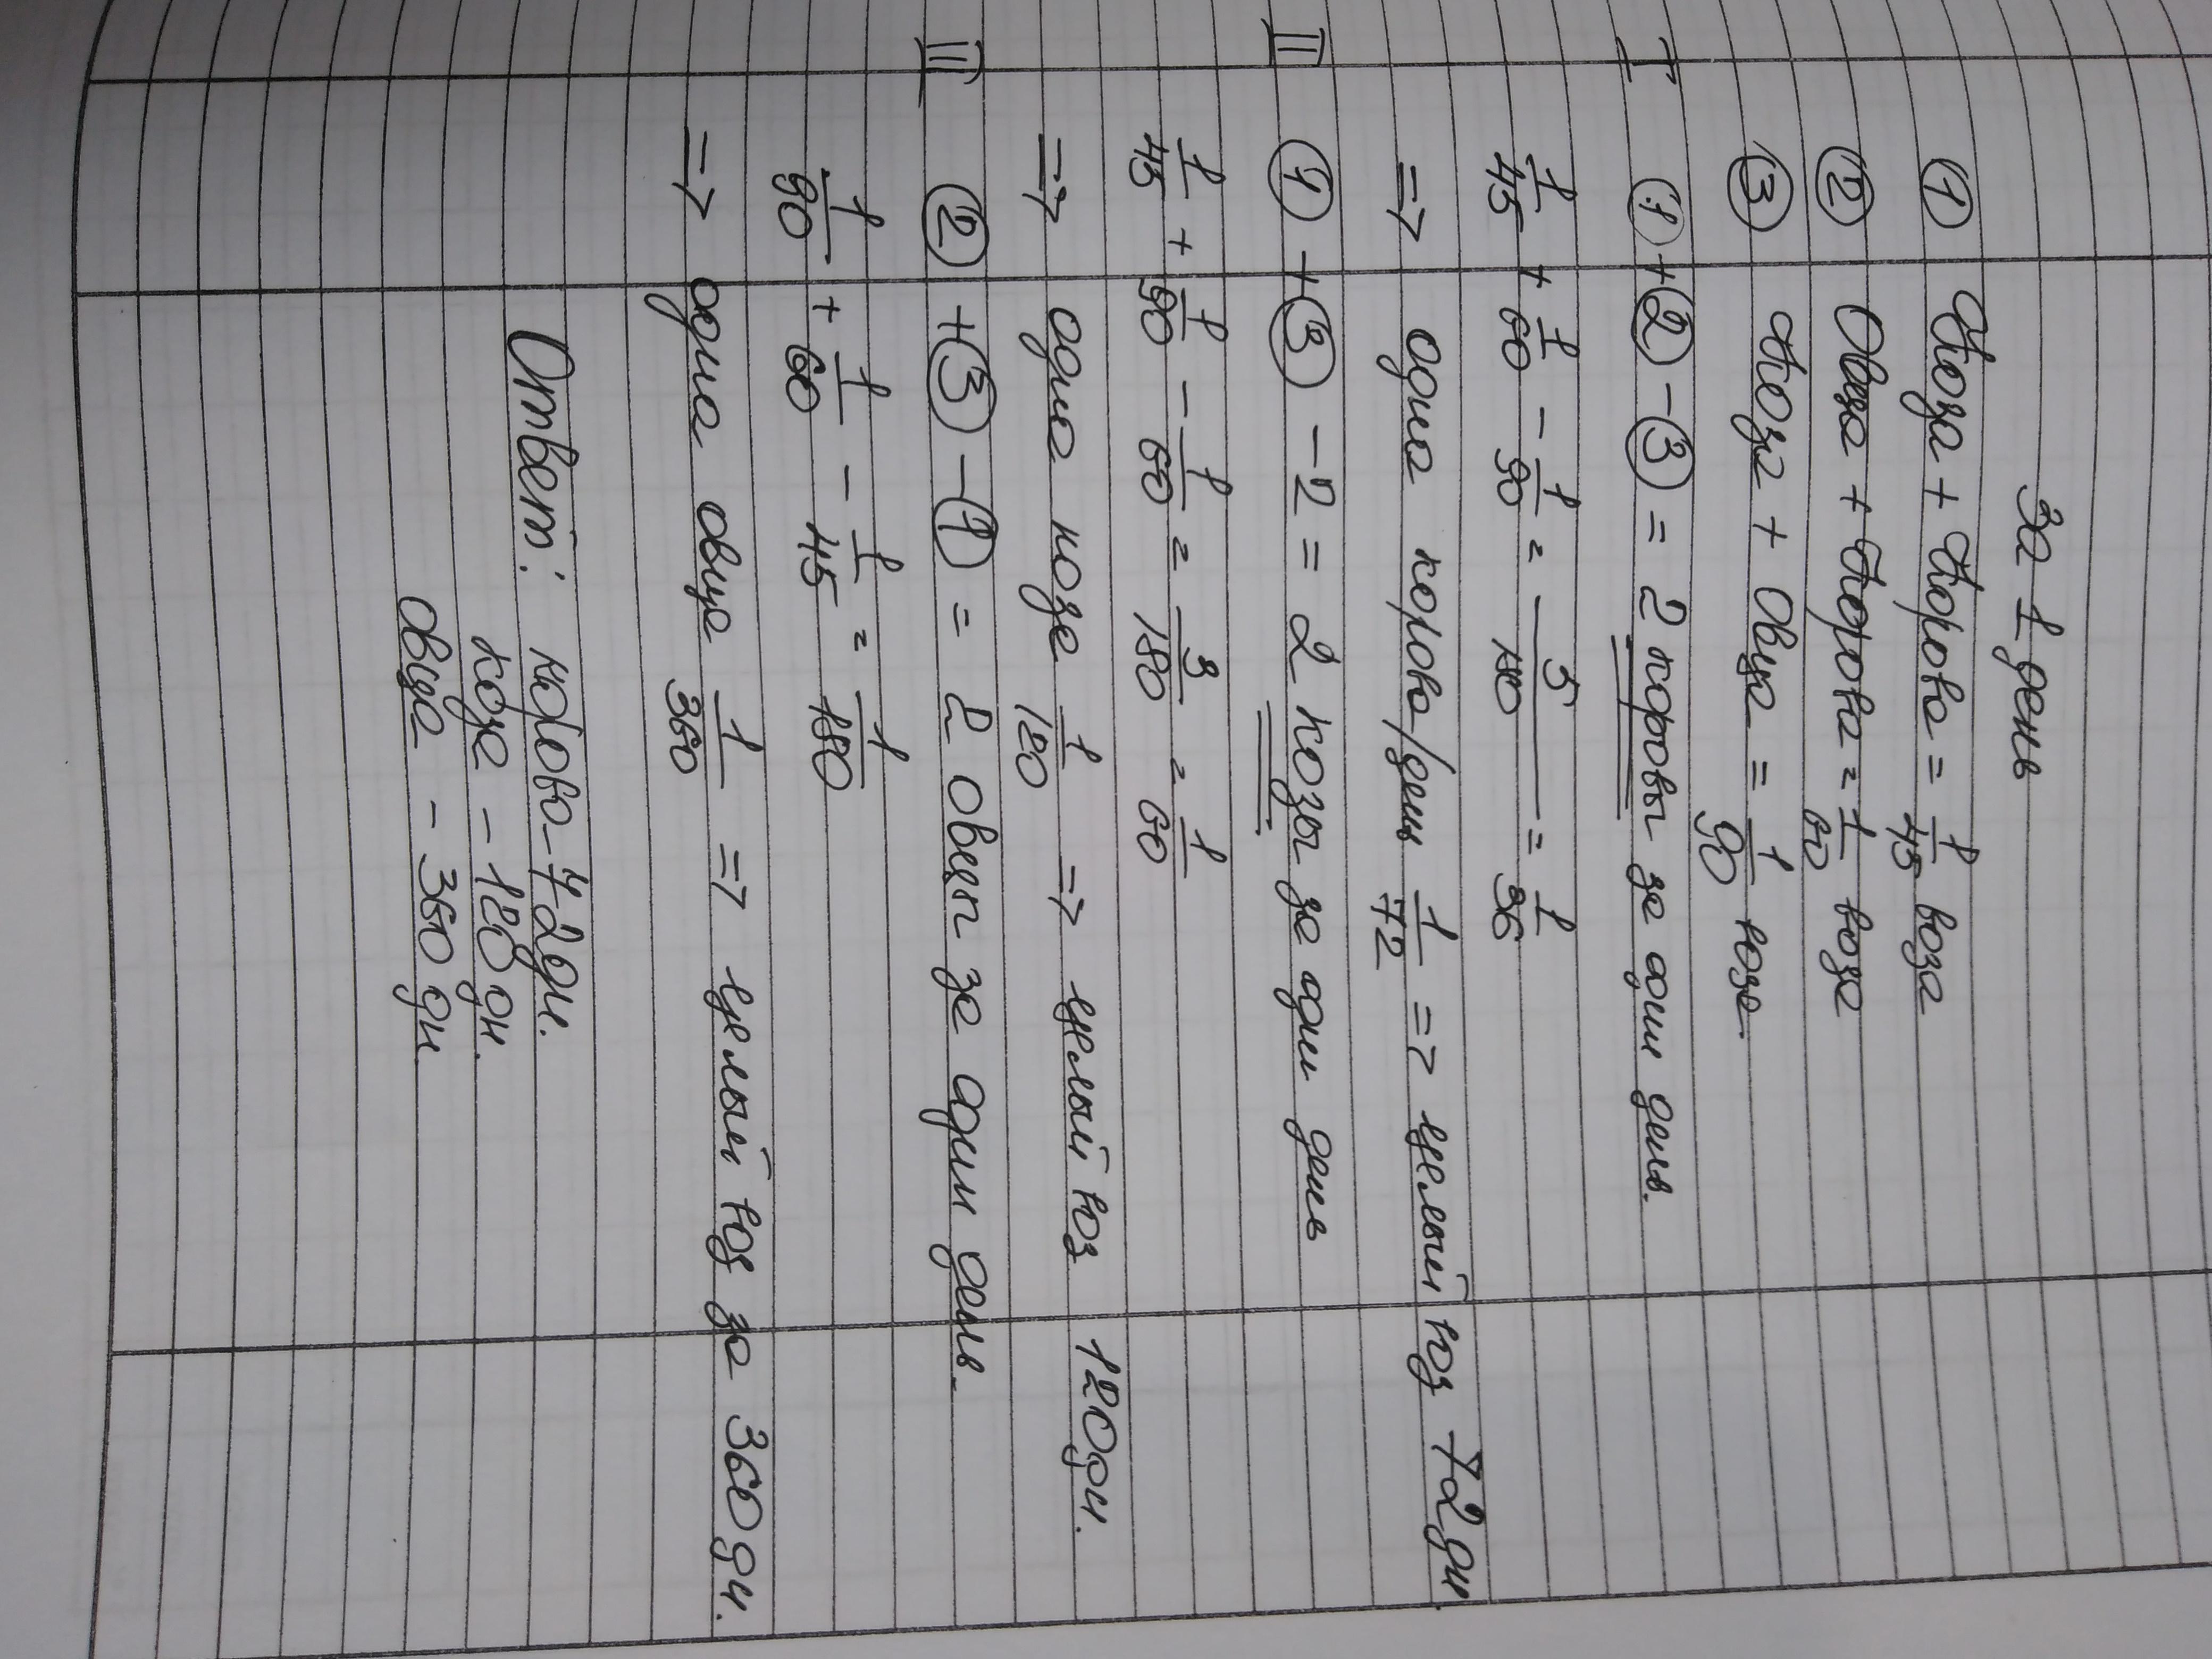 За 1 день
① Коза + Корова = 1/45 воза
② Овца + Корова = 1/60 воза
③ Коза + Овца = 1/90 воза
I ① + ② - ③ = 2 коровы за один день.
1/45 + 1/60 - 1/90 = 5/180 = 1/36
=> одна корова/день 1/72 => целый воз 72 дн.
II ① + ③ - 2 = 2 козы за один день
1/45 + 1/90 - 1/60 = 3/180 = 1/60
=> одна коза 1/120 => целый воз 120 дн.
III ② + ③ - ① = 2 овец за один день.
1/90 + 1/60 - 1/45 = 1/180
=> одна овца 1/360 => целый воз за 360 дн.
Ответ: корова - 72 дн.
коза - 120 дн.
овца - 360 дн.